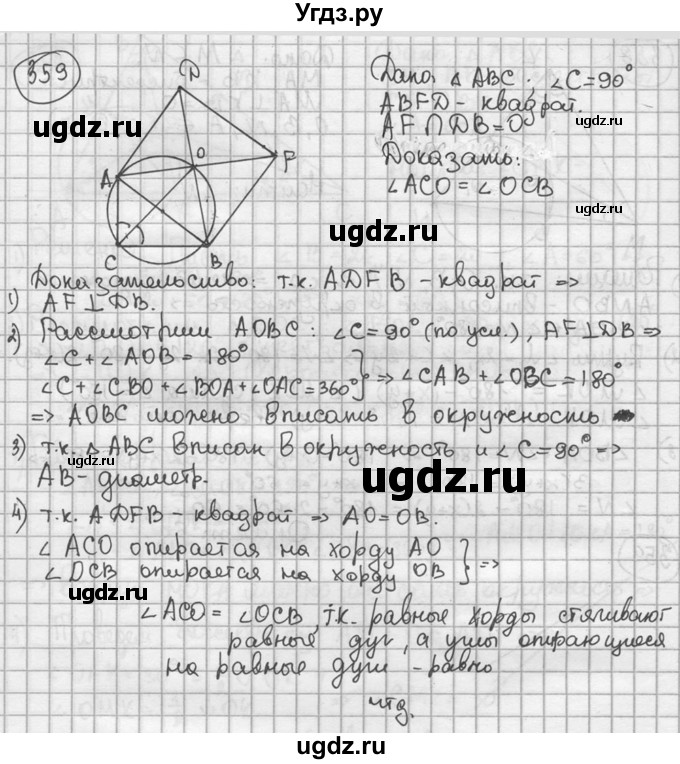 Угдз.ру
359
Дано: △ ABC; ∠C=90°
ABFD - квадрат.
AF∩DB=O
Доказать:
∠ACO = ∠OCB
D
O
F
A
C
B
ugdz.ru
ugdz.ru
ugdz.ru
ugdz.ru
ugdz.ru
Доказательство: т.к. ADFB - квадрат =>
1) AF⊥DB.
2) Рассмотрим AOBC: ∠C=90° (по усл.), AF⊥DB =>
∠C+∠AOB = 180°
∠C+∠CBO+∠BOA+∠OAC=360° } => ∠CAB+∠OBC=180°
=> AOBC можно вписать в окружность
3) т.к. △ ABC вписан в окружность и ∠C=90° =>
AB - диаметр.
ugdz.ru
ugdz.ru
4) т.к. ADFB - квадрат => AO=OB.
∠ ACO опирается на хорду AO
∠ DCB опирается на хорду OB } =>
ugdz.ru
ugdz.ru
∠ACO = ∠OCB, т.к. равные хорды стягивают
равные дуг, а углы опирающиеся
на равные дуги - равно
чтд.
ugdz.ru
ugdz.ru
ugdz.ru